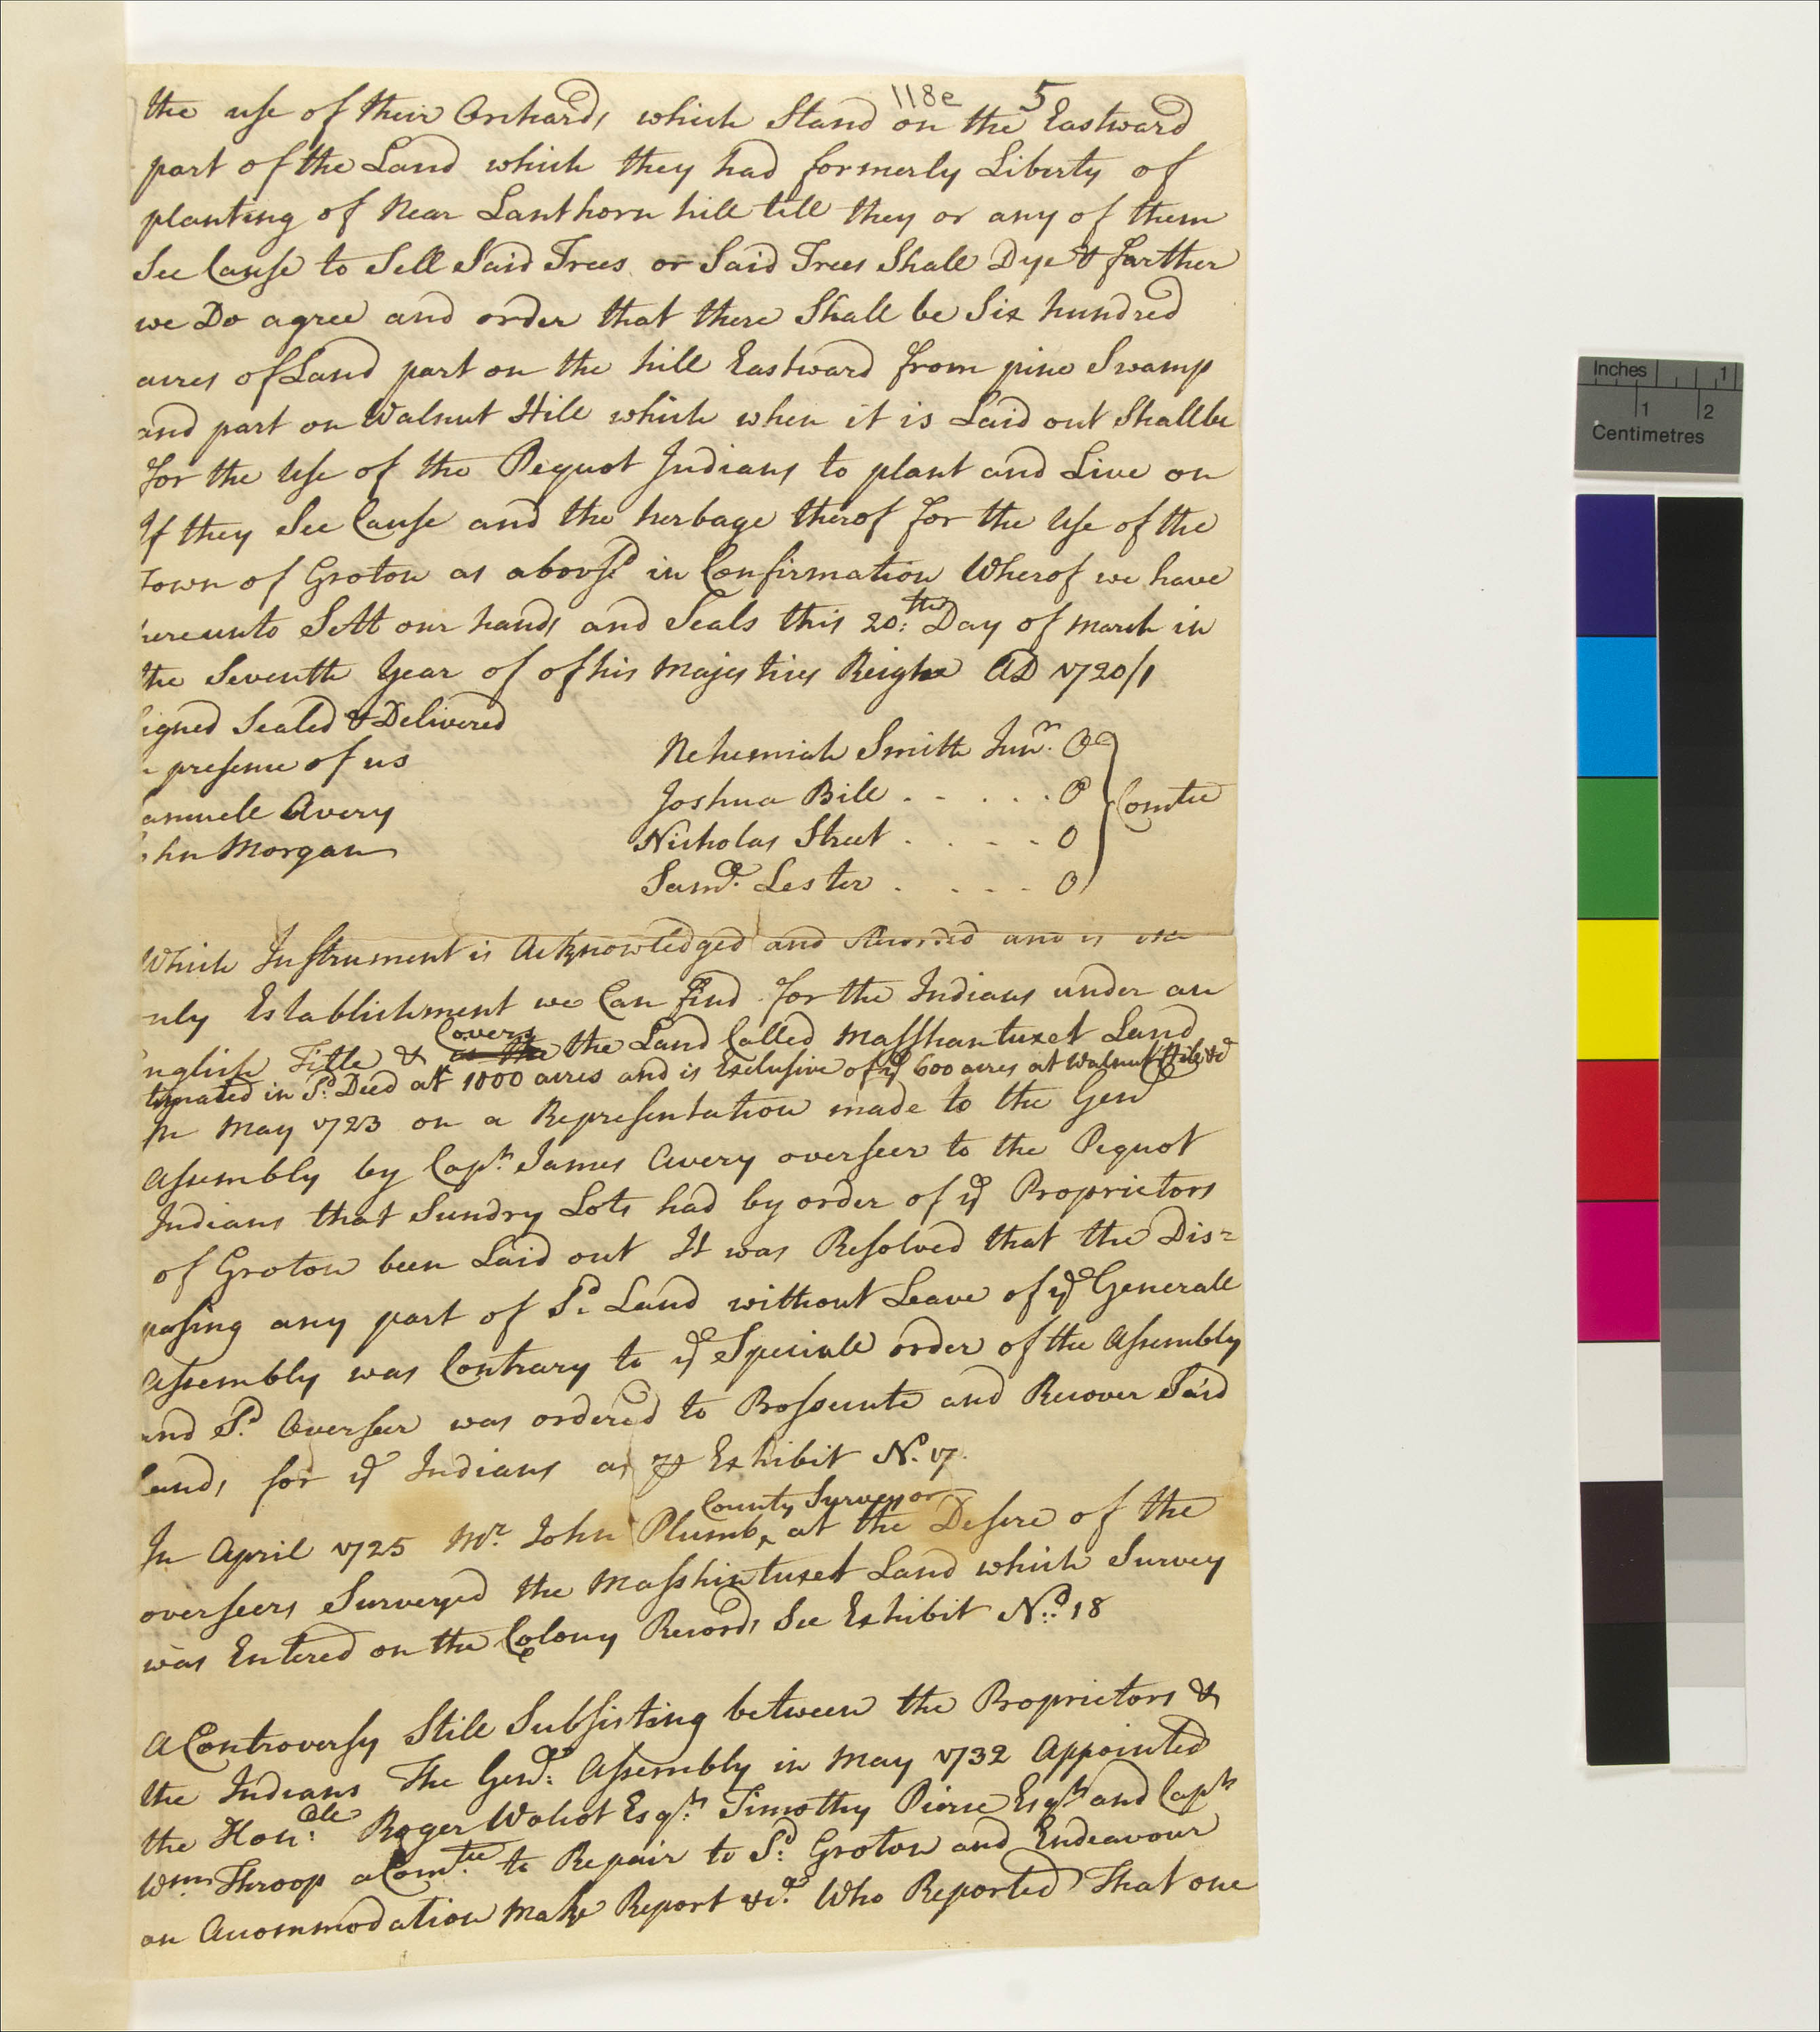 118e 5
the use of their Orchards which Stand on the Eastward
part of the Land which they had formerly Liberty of
planting of Near Lanthorn hill till they or any of them
See Cause to Sell Said Trees or Said Trees Shall Dye & farther
we Do agree and order that there Shall be Six hundred
acres of Land part on the hill Eastward from pine Swamp
and part on Walnut Hill which when it is Laid out Shall be
for the Use of the Pequot Indians to plant and Live on
If they See Cause and the herbage therof for the Use of the
Town of Groton as abovsd in Confirmation Wherof we have
hereunto Sett our hands and Seals this 20:th Day of March in
the Seventh Year of of his Majesties Reighn AD 1720/1
igned Sealed & Delivered
presence of us
amuell Avery
ohn Morgan
Nehemiah Smith Junr. O
Joshua Bill . - . . . O
Nicholas Street . . . - O
Samll. Lester . . - - O
Comtee
Which Instrument is Acknowledged and Recorded and is the
only Establishment we Can find for the Indians under an
Covers
nglish Title & as the the Land Called Masshantuxet Land
timated in Sd. Deed att 1000 acres and is Exclusive of ye 600 acres at Walnut Hill &c
In May 1723 on a Representation made to the Genll
Assembly by Capt. James Avery overseer to the Pequot
Indians that Sundry Lots had by order of ye Proprietors
of Groton been Laid out It was Resolved that the Dis=
posing any part of Sd. Land without Leave of ye Generall
Assembly was Contrary to ye Speciall order of the Assembly
and Sd. Overseer was ordered to Prossecute and Recover Said
Lands for ye Indians as ⅌ Exhibit No. 17.
County Surveyor
In April 1725 Mr. John Plumb ‸ at the Desire of the
overseers Surveyed the Masshintuxet Land which Survey
was Entered on the Colony Records See Exhibit No. 18
A Controversy Still Subsisting between the Proprietors &
the Indians The Genll: Assembly in May 1732 Appointed
the Hon:ble Roger Wolcot Esqr. Timothy Pierce Esqr and Capt
Wm. Throop a Comtee. to Repair to Sd: Groton and Endeavour
an Accommodation Make Report &ca. Who Reported That one
Inches 1
1 2
Centimetres